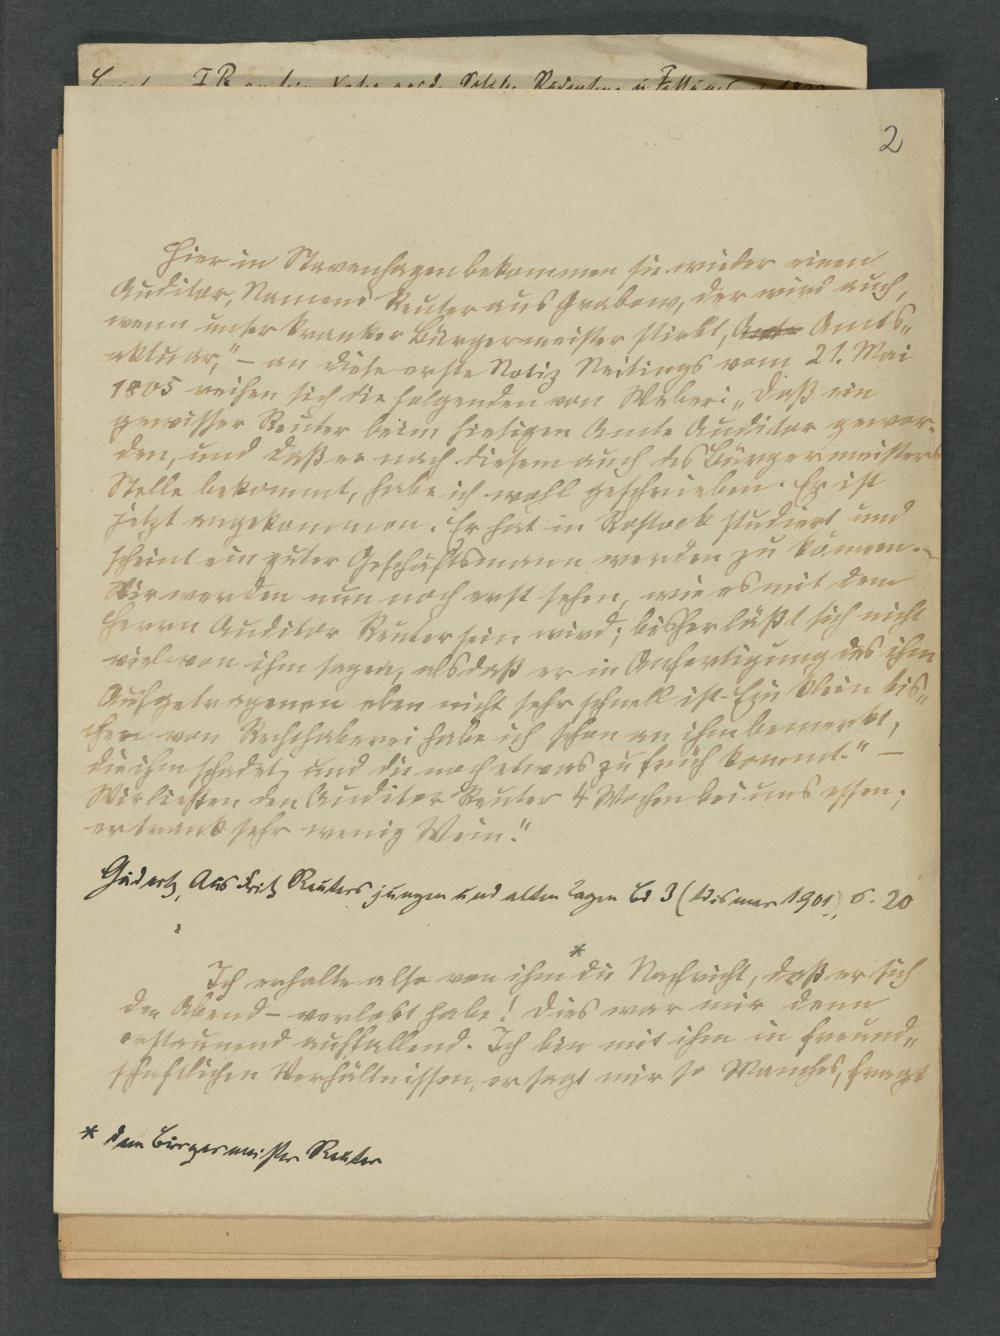 2
Hier in Stavenhagen bekommen sie wieder einen
Auditor, Namens Reuter aus Grabow, der wird auch,
wenn unser kranker Bürgermeister stirbt, Amts„
aktuar," – an diese erste Notiz Neitings vom 21. Mai
1805 reihen sich die folgenden von Weber: „Daß ein
gewisser Reuter beim hiesigen Amte Auditor gewor-
den, und daß er nach diesem auch des Bürgermeisters
Stelle bekommt, habe ich wohl geschrieben. Er ist
jetzt angekommen. Er hat in Rostock studiert und
scheint ein guter Geschäftsmann werden zu können. –
Wir werden nun noch erst sehen, wie es mit dem
Herrn Auditor Reuter sein wird; bisher läßt sich nicht
viel von ihm sagen, als daß er in Anfertigung des ihm
Aufgetragenen eben nicht sehr schnell ist. Ein klein bis„
chen von Rechthaberei habe ich schon an ihm bemerkt,
die ihm schadet, und die noch etwas zu früh kommt." –
Wir ließen den Auditor Reuter 4 Wochen bei uns essen;
er trank sehr wenig Wein."
Gädertz, Aus Fritz Reuters jungen und alten Tagen Bd 3 (Wismar 1901), S. 20
Ich erhalte also von ihm* die Nachricht, daß er sich
den Abend – verlobt habe! Dies war mir denn
erstaunend auffallend. Ich bin mit ihm in freund„
schaftlichen Verhältnissen, er sagt mir so Manches, fragt
* dem Bürgermeister Reuter